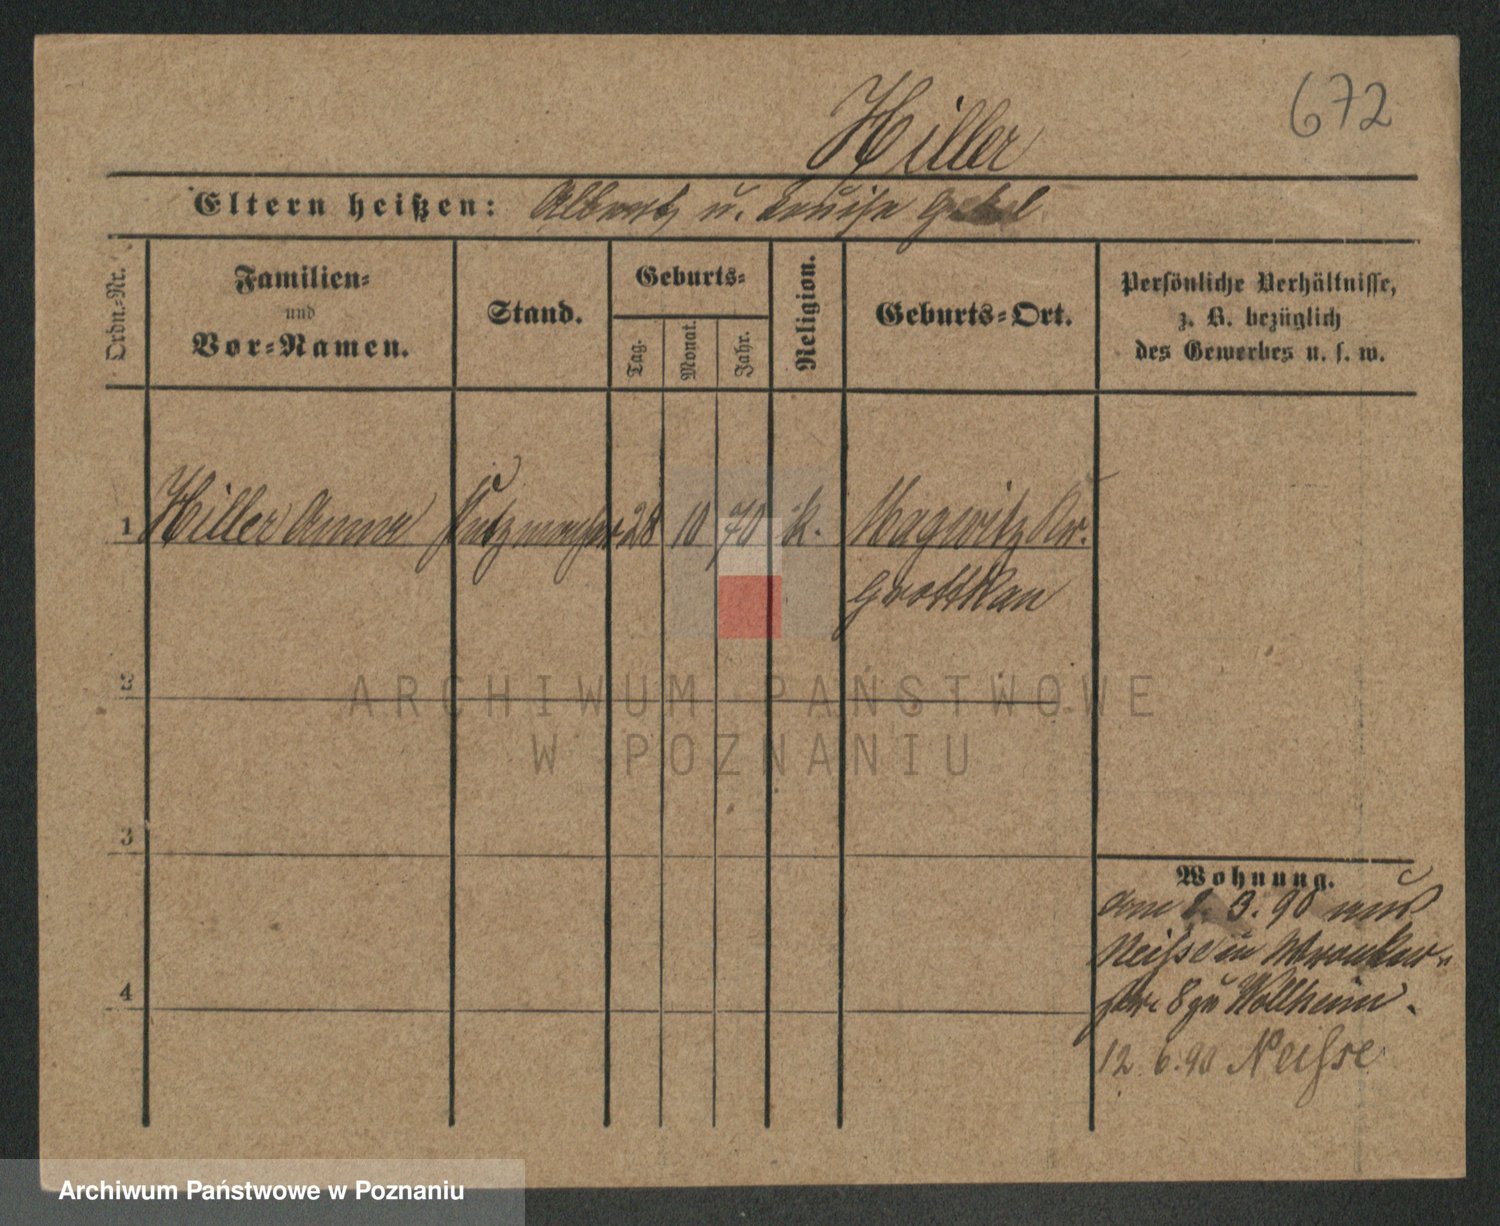 672
Hiller
Eltern heißen: Albert u. Louise
Ordn.-Nr.
Familien-
und
Vor-Namen.
Stand.
Geburts-
Tag.
Monat.
Jahr.
Religion.
Geburts-Ort.
Persönliche Verhältnisse,
z. B. bezüglich
des Gewerbes u. s. w.
1 Hiller Anna 28 10 70 k. Magwitz Kr.
Grottkau
2
ARCHIWUM PAŃSTWOWE
W POZNANIU
3
Wohnung.
3. 90 aus
Neisse in Wronker-
str. 8 zu Wollheim.
4
12. 6. 90 Neisse
Archiwum Państwowe w Poznaniu